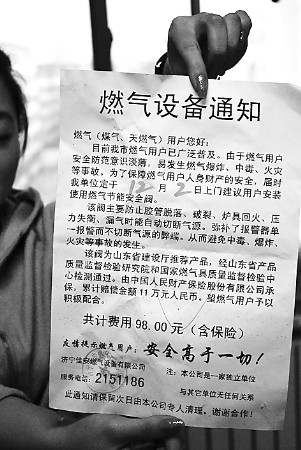 燃气设备通知
燃气（煤气、天燃气）用户您好：
目前我市燃气用户已广泛普及。由于燃气用户
安全防范意识淡薄，易发生燃气爆炸、中毒、火灾
等事故。为了保障燃气用户人身财产的安全，届时
我单位定于12月2日上门建议用户安装
使用燃气节能安全阀。
该阀主要防止胶管脱落、破裂、炉具回火、压
力失衡、漏气时能自动切断气源。弥补了报警器单
一报警而不切断气源的弊端。从而避免中毒、爆炸、
火灾等事故的发生。
该阀为山东省建设厅推荐产品，经山东省产品
质量监督检验研究院和国家燃气具质量监督检验中
心检测通过。由中国人民财产保险股份有限公司承
保，累计赔偿金额11万元人民币。望燃气用户予以
积极配合。
共计费用98.00元（含保险）
友情提示燃气用户：安全高于一切！
济宁佳安燃气设备有限公司
注：本公司是一家独立单位
服务电话：2151186
与其它单位无任何关系
此通知请保留次日由本公司专人清理。谢谢合作！